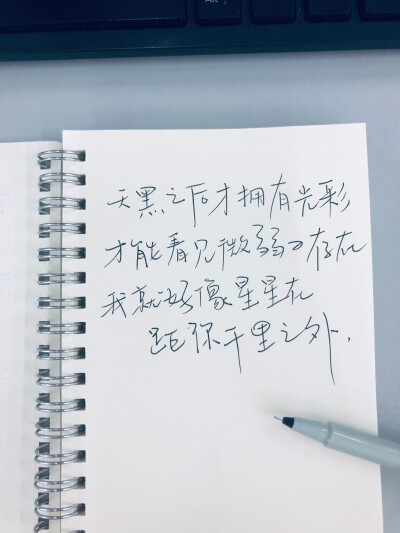 天黑之后才拥有光彩
才能看见微弱的存在
我就好像星星在
距你千里之外.